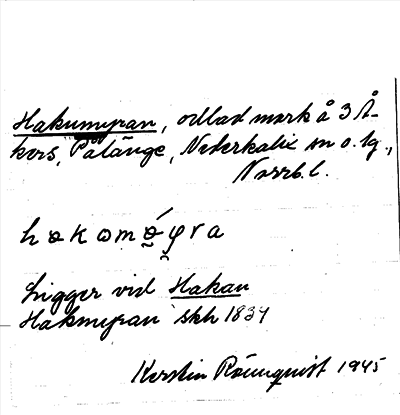 Hakumyran, odlad mark å 3 Å-
kers, Pålänge, Nederkalix sn o. tg,
Norrb. l.
hɵkɷmɵ́φra
Ligger vid Hakan
Hakmyran skh 1834
Kerstin Rönnquist 1945